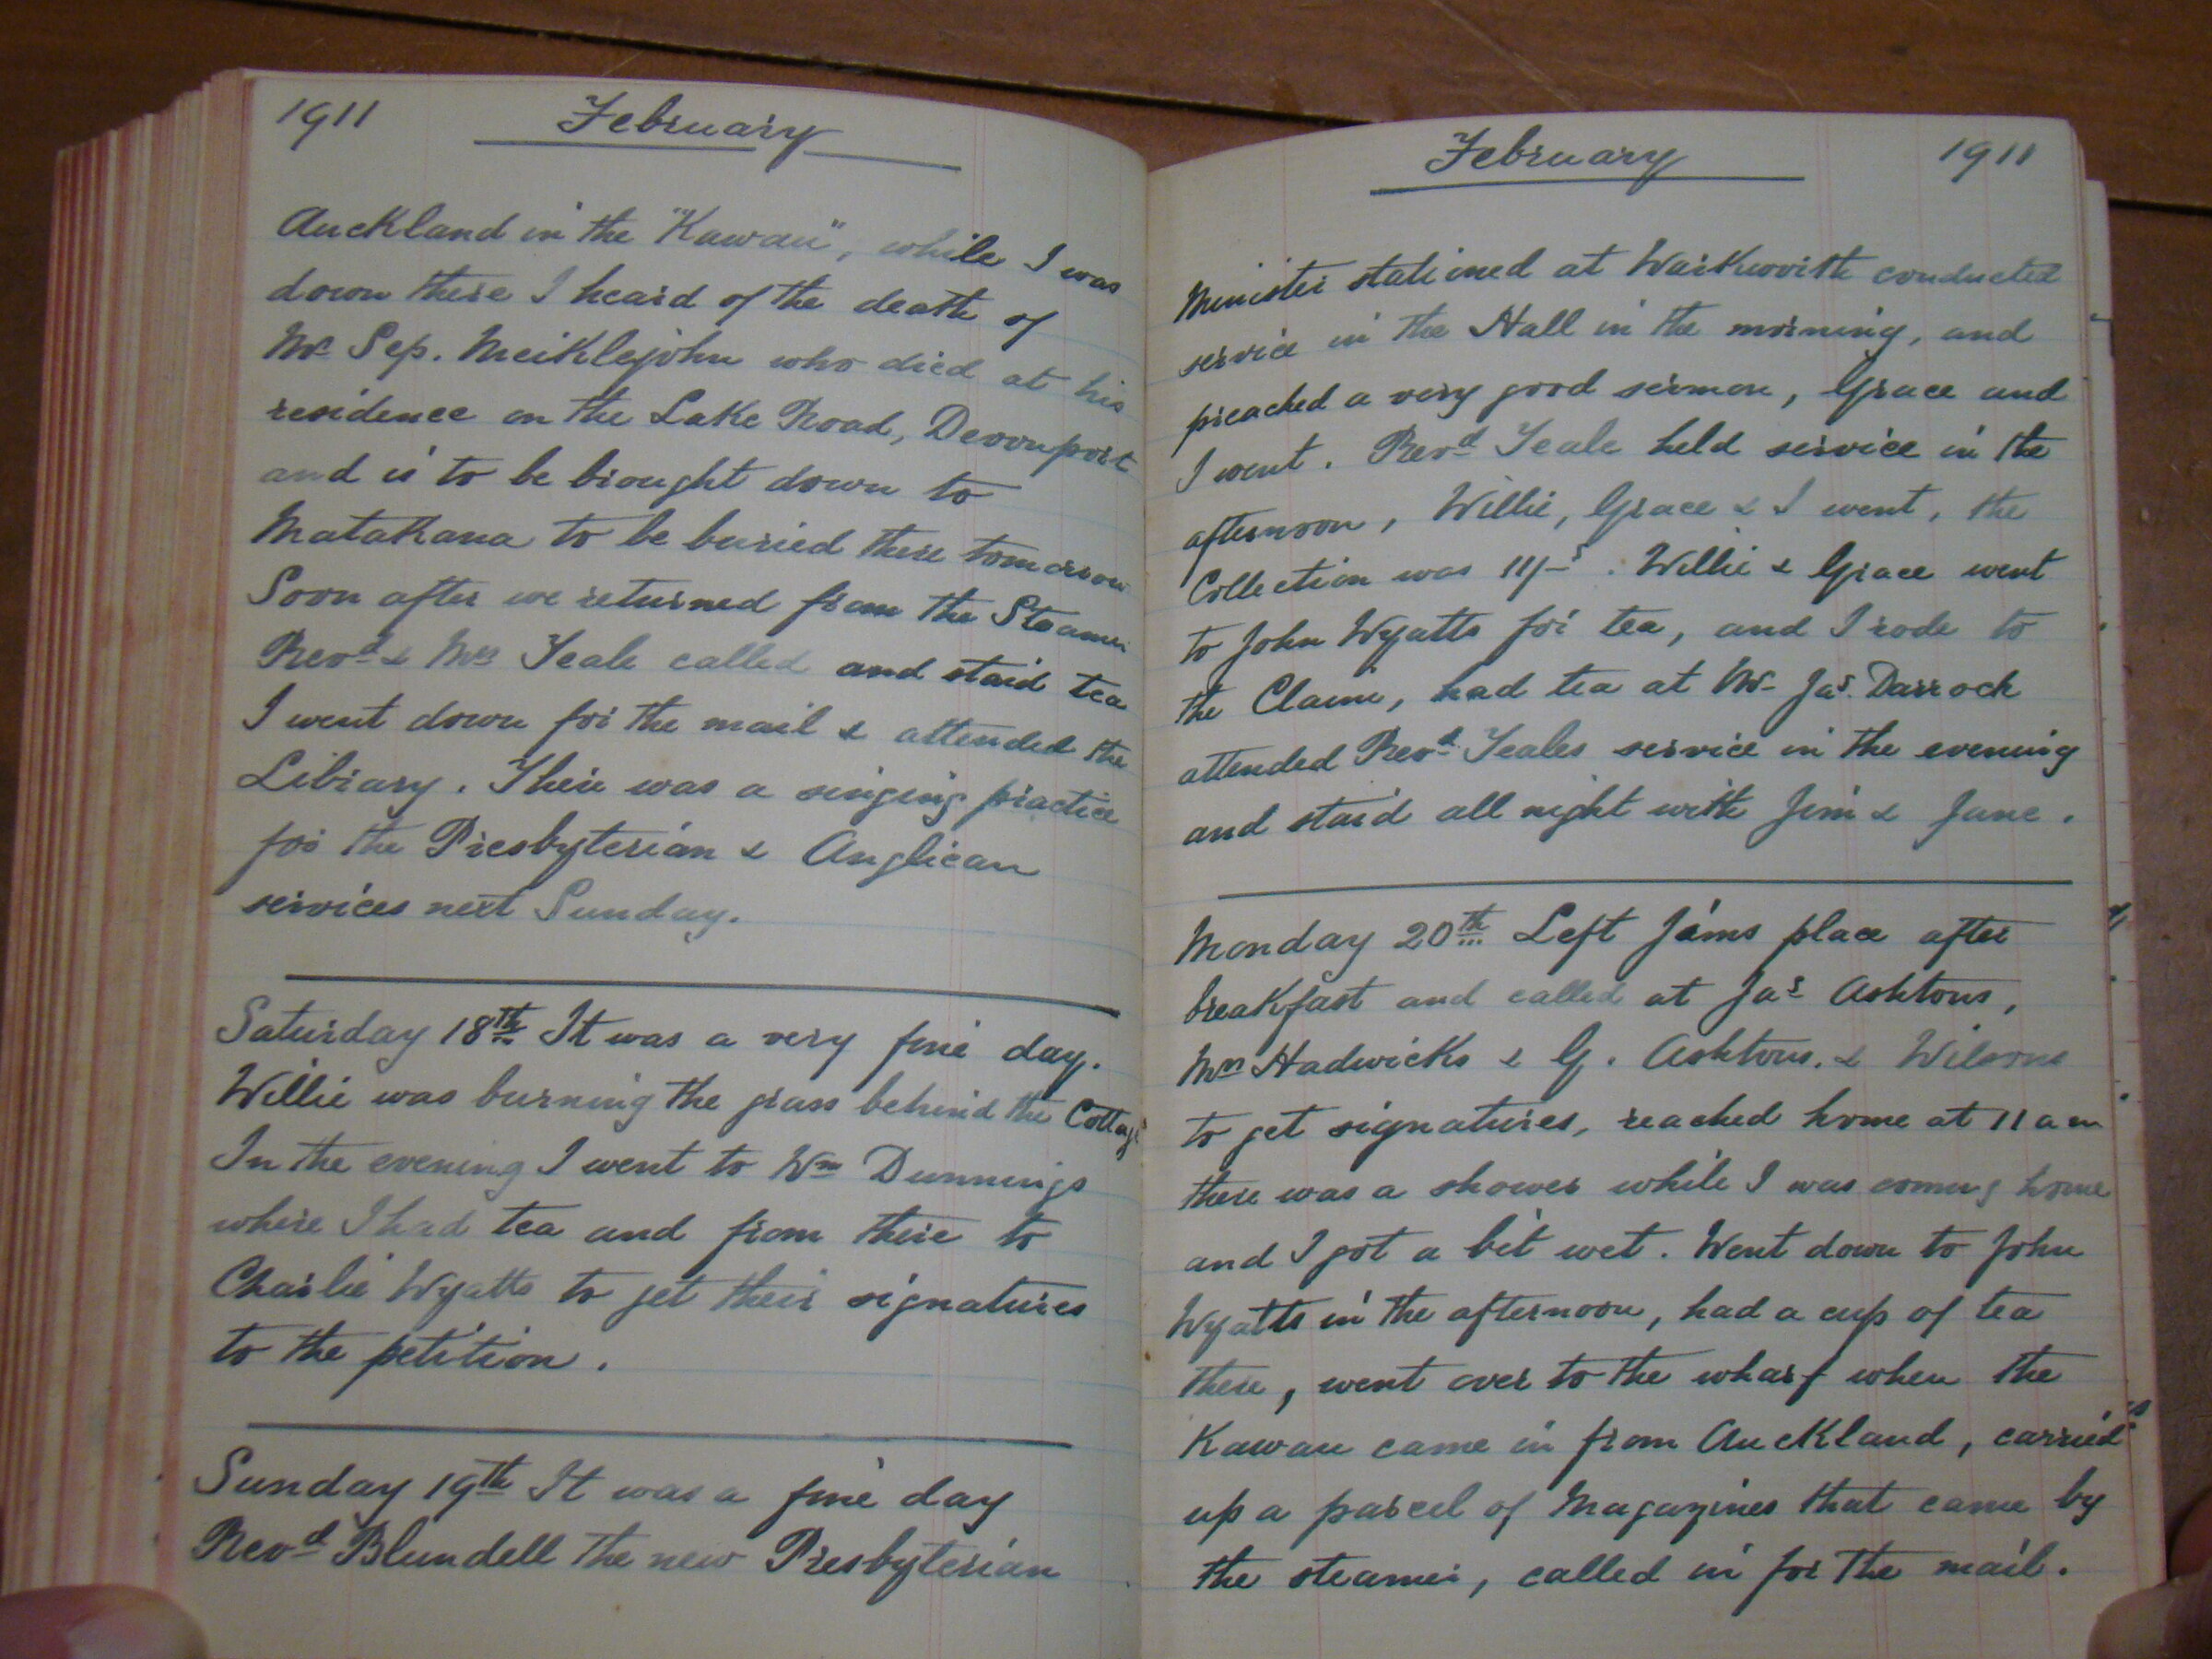 1911 February
Auckland in the "Kawau", while I was
down there I heard of the death of
Mr Sep. Meiklejohn who died at his
residence on the Lake Road, Devonport
and is to be brought down to
Matakana to be buried there tomorrow
Soon after we returned from the Steamer
Revd & Mrs Yeale called and staid tea
I went down for the mail & attended the
Library. There was a singing practice
for the Presbyterian & Anglican
services next Sunday.
Saturday 18th It was a very fine day.
Willie was burning the grass behind the Cottage
In the evening I went to Wm Dunnings
where I had tea and from there to
Charlie Wyatts to get their signatures
to the petition.
Sunday 19th It was a fine day
Revd Blundell the new Presbyterian
February 1911
Minister stationed at Warkworth conducted
service in the Hall in the morning, and
preached a very good sermon, Grace and
I went. Revd Yeale held service in the
afternoon, Willie, Grace & I went, the
Collection was 11/-s. Willie & Grace went
to John Wyatts for tea, and I rode to
the Claim, had tea at Mr Jas. Darroch
attended Revd Yeales service in the evening
and staid all night with Jim & Jane.
Monday 20th Left Jims place after
breakfast and called at Jas Ashtons,
Mrs Hadwicks & G. Ashtons. & Wilsons
to get signatures, reached home at 11 am
there was a shower while I was coming home
and I got a bit wet. Went down to John
Wyatts in the afternoon, had a cup of tea
there, went over to the wharf when the
Kawau came in from Auckland, carried
up a parcel of Magazines that came by
the steamer, called in for the mail.